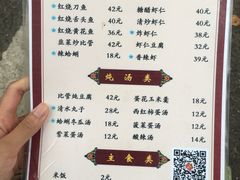 红烧刀鱼 42元 糖醋虾仁 40元
红烧舌头鱼 40元 清炒虾仁 40元
红烧黄花鱼 36元 炸虾仁 38元
韭菜炒比管 42元 虾仁豆腐 32元
辣蛤蜊 18元 香辣虾 39元
炖汤类
比管炖豆腐 42元 蛋花玉米羹 18元
清水丸子 28元 西红柿蛋汤 12元
蛤蜊冬瓜汤 18元 菠菜蛋汤 12元
紫菜蛋汤 12元 酸辣汤 14元
主食类
米饭 2元